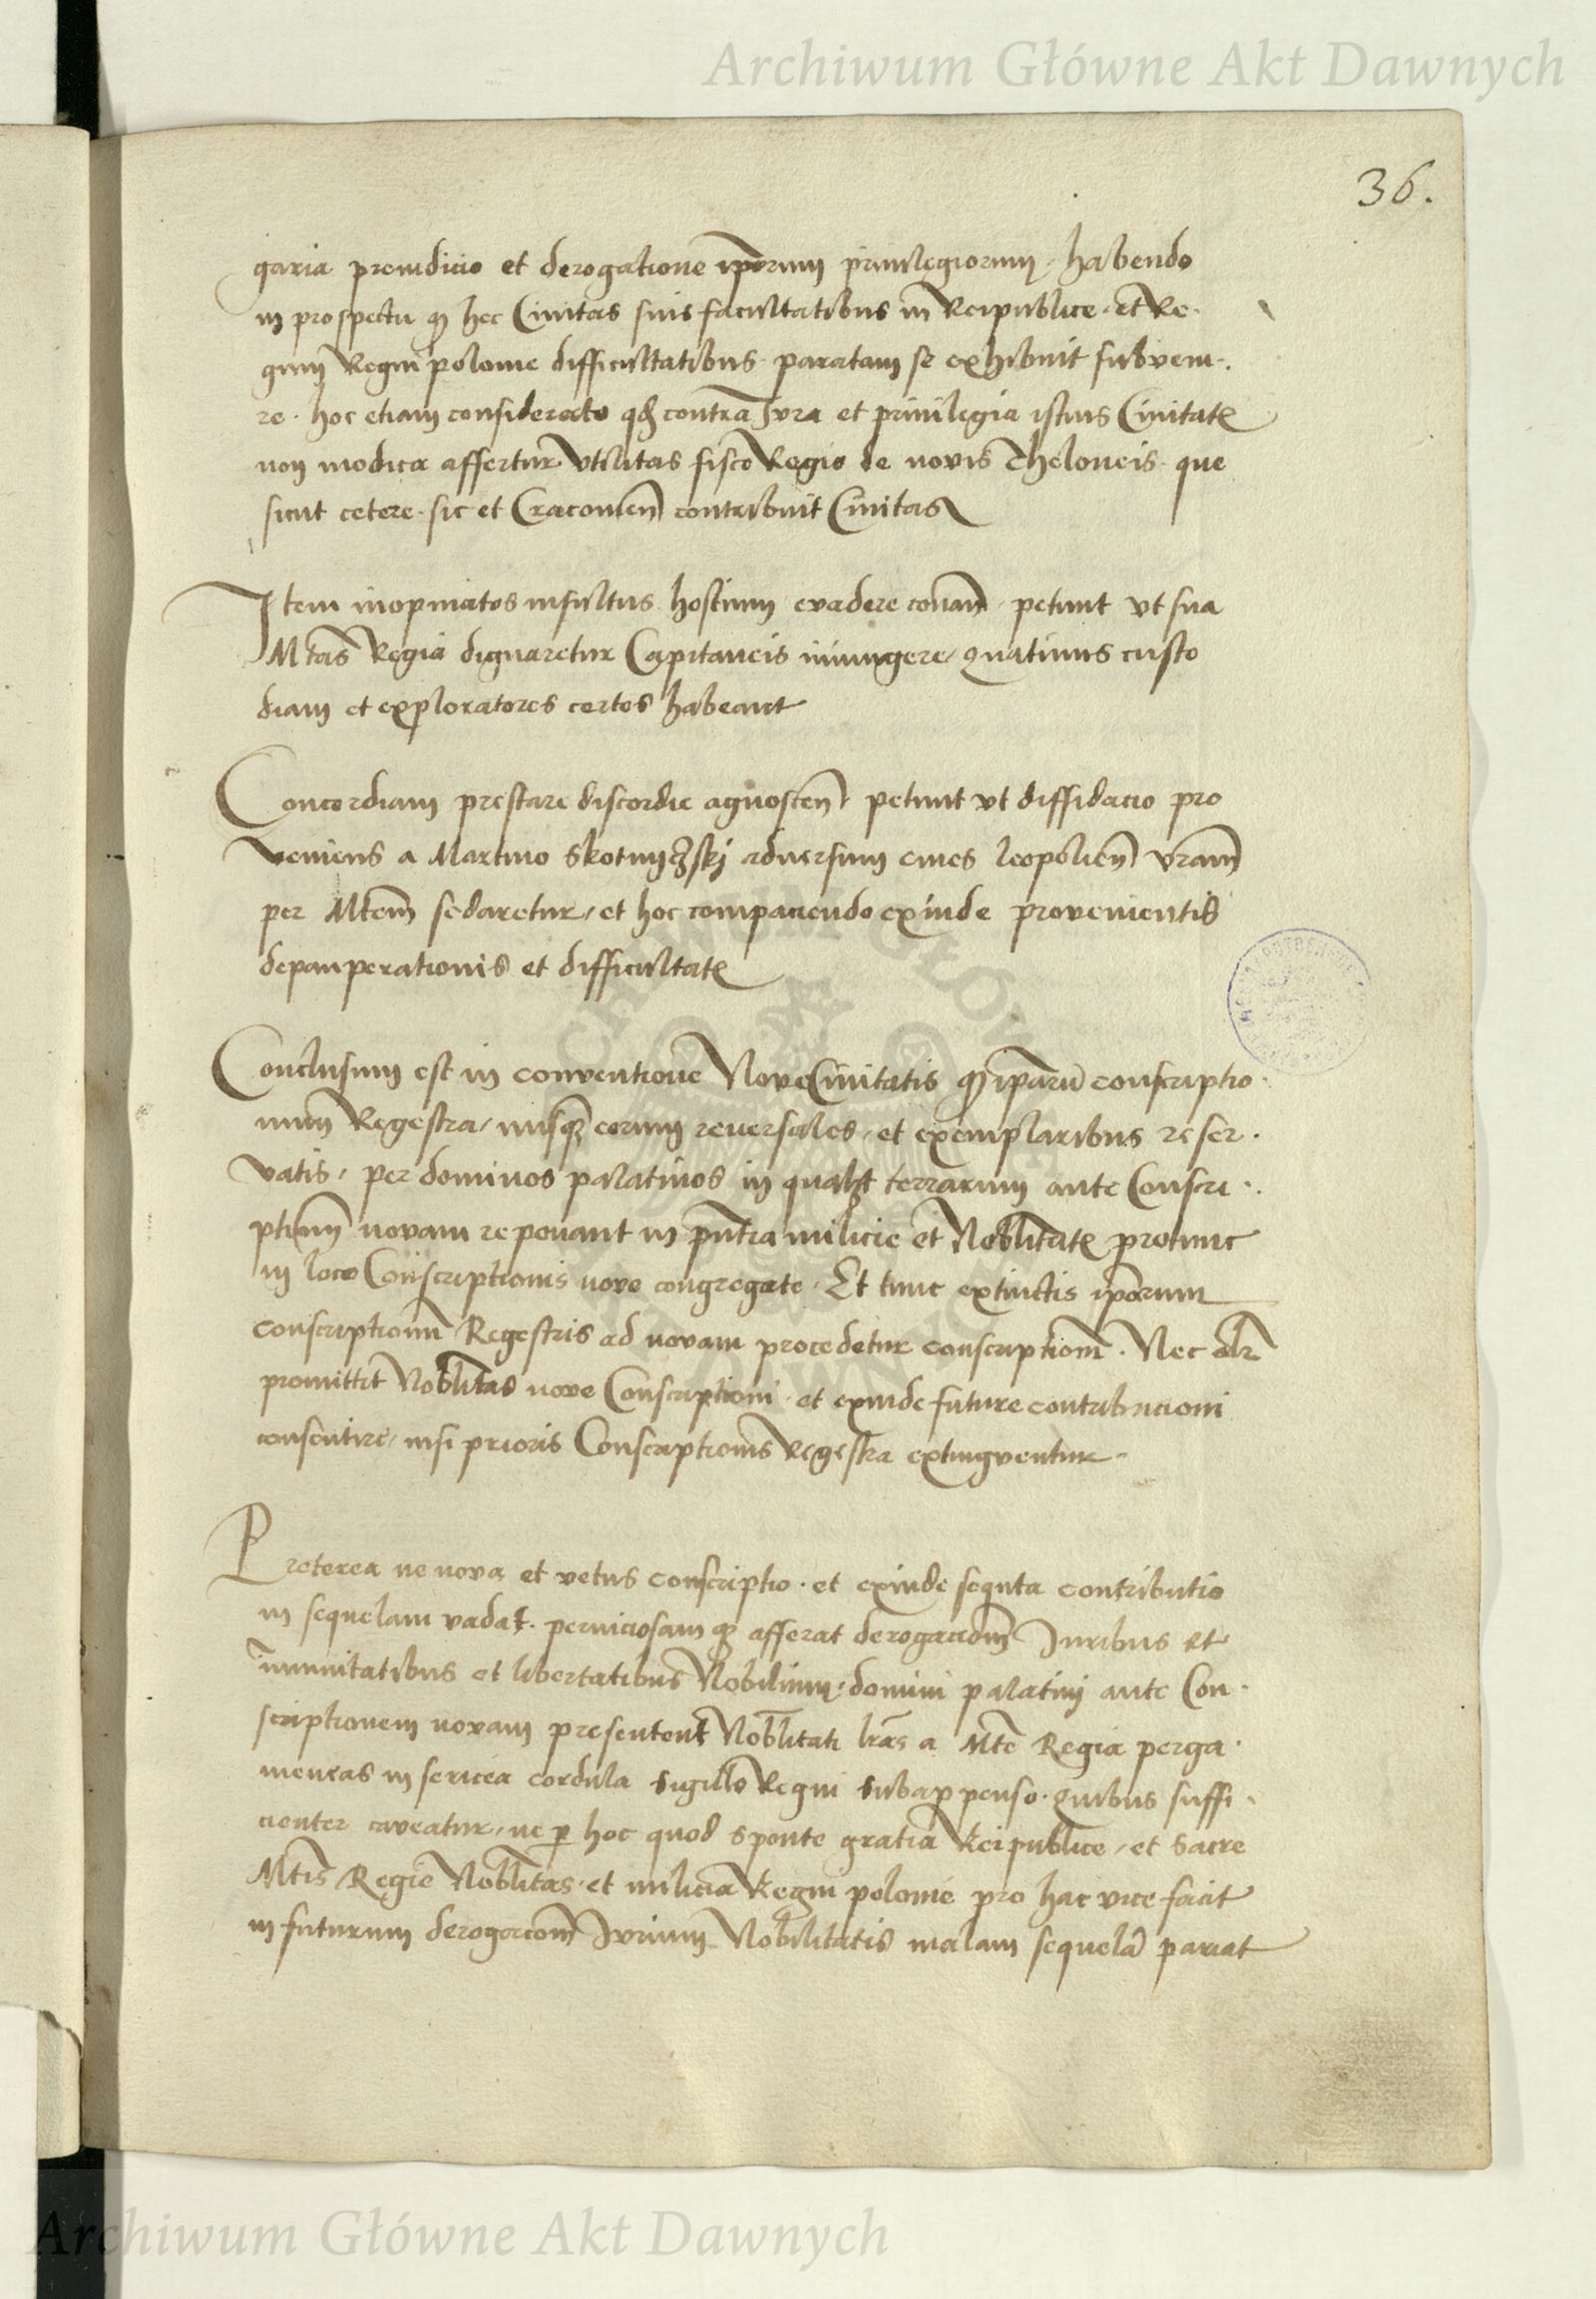 Archiwum Główne Akt Dawnych
36.
garia preiudicio et derogatione ipōrum priuilegiorum, habendo
in prospectu q hec Ciuitas suis facultatibus in Reipublice. et Re.
gum Regni polonie difficultatibus. paratam se exhibuit subveni.
re. hoc etiam considerato qd contra Jura et priuilegia istius Ciuitate
non modica affertur Vtilitas fisco Regio de novis Theloneis. que
sicut cetere. sic et Cracouien contribuit Ciuitas
Item inopinatos insultus hostium evadere conan. petunt vt sua
Mtas Regia dignaretur Capitaneis iniungere, quatinus custo
diam et exploratores certos habeant
Concordiam prestare discordie agnoscen. petunt vt diffidacio pro
veniens a Martino Skotniczskj aduersum ciues leopolien vram
per Mtem sedaretur, et hoc compaciendo exinde provenientis
depauperationis et difficultate
Conclusum est in conventione Nove Ciuitatis q ipsarū conscriptio.
num Regestra, eorum reuersales, et exemplaribus reser.
vatis, per dominos palatinos in qualt terrarum ante Conscri.
ptionem novam reponant in pntia milicie et Nobilitate protunc
in loco Conscriptionis nove congregate. Et tunc extinctis ipōrum
conscriptionū Regestris ad novam procedetur conscriptionē. Nec alr
promittit Nobilitas nove Conscriptioni. et exinde future contribucioni
consentire, nisi prioris Conscriptionis Regestra extingventur.
Preterea ne nova et vetus conscriptio. et exinde sequta contributio
in sequelam vadat. perniciosam q afferat derogacionē Juribus et
imunitatibus et libertatibus Nobilium, domini palatini ante Con.
scriptionem novam presentent Nobilitati lras a Mte Regia perga.
meneas in sericea cordula Sigillo Regni Subappenso. quibus suffi.
cienter caveatur, ne p hoc quod sponte gratia Reipublice, et Sacre
Mtis Regie Nobilitas. et milicia Regni polonie pro hac vice facit
in futurum derogacionē Jurium Nobilitatis malam sequelā pariat
Archiwum Główne Akt Dawnych